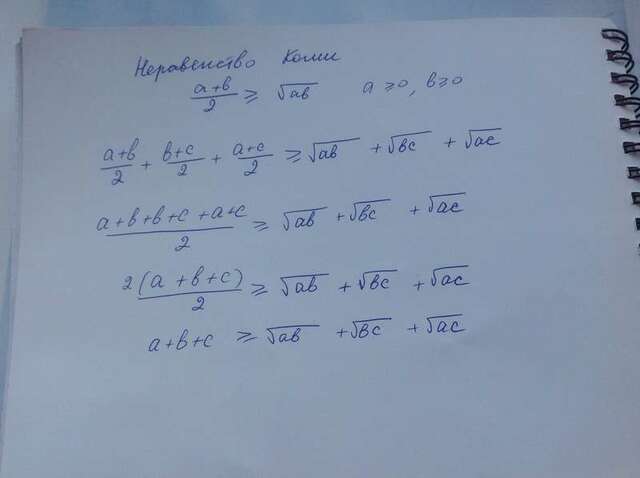 Неравенство Коши
a+b/2 ≥ √ab a ≥ 0, b ≥ 0
a+b/2 + b+c/2 + a+c/2 ≥ √ab + √bc + √ac
a+b+b+c+a+c/2 ≥ √ab + √bc + √ac
2(a+b+c)/2 ≥ √ab + √bc + √ac
a+b+c ≥ √ab + √bc + √ac